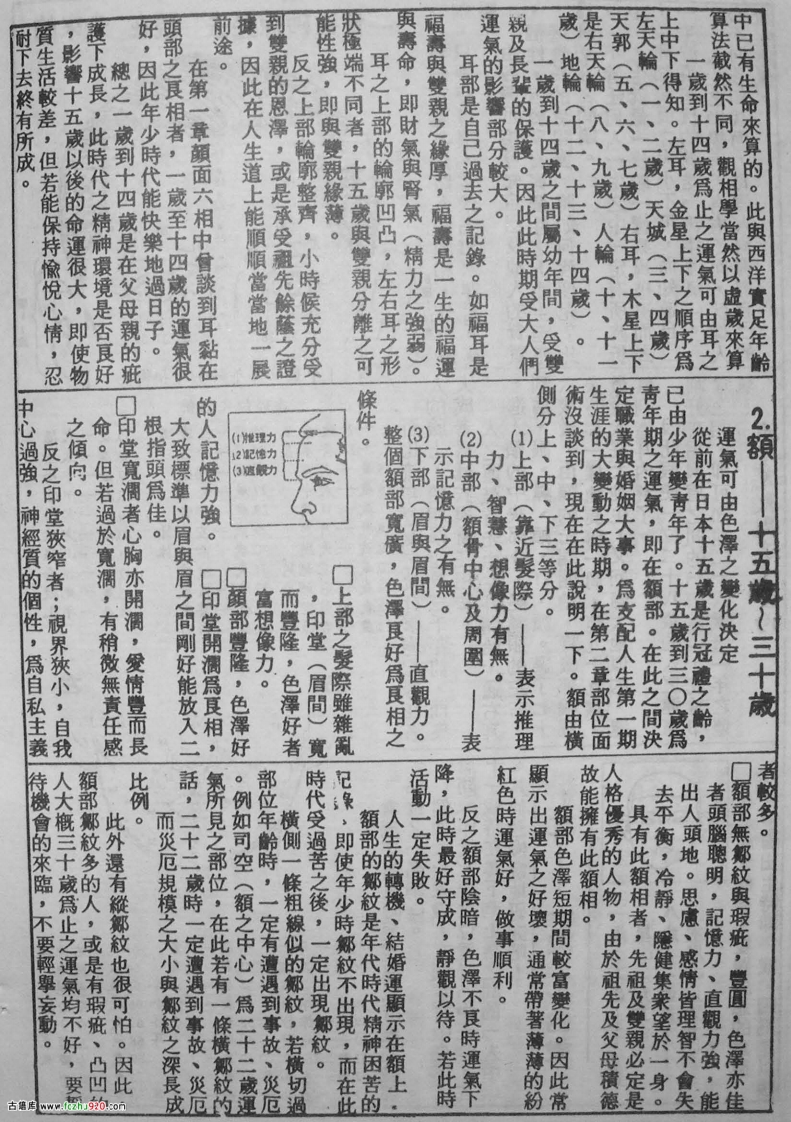 中已有生命來算的。此與西洋實足年齡
算法截然不同，觀相學當然以虛歲來算
一歲到十四歲爲止之運氣可由耳之
上中下得知。左耳，金星上下之順序爲
左天輪（一、二歲）天城（三、四歲）
天郭（五、六、七歲）右耳，木星上下
是右天輪（八、九歲）人輪（十、十一
歲）地輪（十二、十三、十四歲）。
一歲到十四歲之間屬幼年間，受雙
親及長輩的保護。因此此時期受大人們
運氣的影響部分較大。
耳部是自己過去之記錄。如福耳是
福壽與雙親之緣厚，福壽是一生的福運
與壽命，即財氣與腎氣（精力之強弱）。
耳之上部的輪廓凹凸，左右耳之形
狀極端不同者，十五歲與雙親分離之可
能性強，即與雙親緣薄。
反之上部輪廓整齊，小時候充分受
到雙親的恩澤，或是承受祖先餘蔭之證
據，因此在人生道上能順順當當地一展
前途。
在第一章顏面六相中曾談到耳黏在
頭部之良相者，一歲至十四歲的運氣很
好，因此年少時代能快樂地過日子。
總之一歲到十四歲是在父母親的庇
護下成長，此時代之精神環境是否良好
，影響十五歲以後的命運很大，即使物
質生活較差，但若能保持愉悅心情，忍
耐下去終有所成。
2.額——十五歲～三十歲
運氣可由色澤之變化決定
從前在日本十五歲是行冠禮之齡，
已由少年變青年了。十五歲到三〇歲爲
青年期之運氣，即在額部。在此之間決
定職業與婚姻大事。爲支配人生第一期
生涯的大變動之時期，在第二章部位面
術沒談到，現在在此說明一下。額由橫
側分上、中、下三等分。
(1)上部（靠近髮際）——表示推理
力、智慧、想像力有無。
(2)中部（額骨中心及周圍）——表
示記憶力之有無。
(3)下部（眉與眉間）——直觀力。
整個額部寬廣，色澤良好爲良相之
條件。
(1)推理力
(2)記憶力
(3)直觀力
□上部之髮際雖雜亂
，印堂（眉間）寬
而豐隆，色澤好者
富想像力。
□顏部豐隆，色澤好
的人記憶力強。
□印堂開濶爲良相，
大致標準以眉與眉之間剛好能放入二
根指頭爲佳。
□印堂寬濶者心胸亦開濶，愛情豐而長
命。但若過於寬濶，有稍微無責任感
之傾向。
反之印堂狹窄者；視界狹小，自我
中心過強，神經質的個性，爲自私主義
者較多。
□額部無皺紋與瑕疵，豐圓，色澤亦佳
者頭腦聰明，記憶力、直觀力強，能
出人頭地。思慮、感情皆理智不會失
去平衡，冷靜、隱健集衆望於一身。
具有此額相者，先祖及雙親必定是
人格優秀的人物，由於祖先及父母積德
故能擁有此額相。
額部色澤短期間較富變化。因此常
顯示出運氣之好壞，通常帶著薄薄的紛
紅色時運氣好，做事順利。
反之額部陰暗，色澤不良時運氣下
降，此時最好守成，靜觀以待。若此時
活動一定失敗。
人生的轉機、結婚運顯示在額上，
額部的皺紋是年代時代精神困苦的
記錄、即使年少時皺紋不出現，而在此
時代受過苦之後，一定出現皺紋。
橫側一條粗線似的皺紋，若橫切過
部位年齡時，一定有遭遇到事故、災厄
。例如司空（額之中心）爲二十二歲運
氣所見之部位，在此若有一條橫皺紋的
話，二十二歲時一定遭遇到事故、災厄
而災厄規模之大小與皺紋之深長成
比例。
此外還有縱皺紋也很可怕。因此
額部皺紋多的人，或是有瑕疵、凸凹的
人大概三十歲爲止之運氣均不好，要
待機會的來臨，不要輕擧妄動。
古籍库 www.fczhu920.com